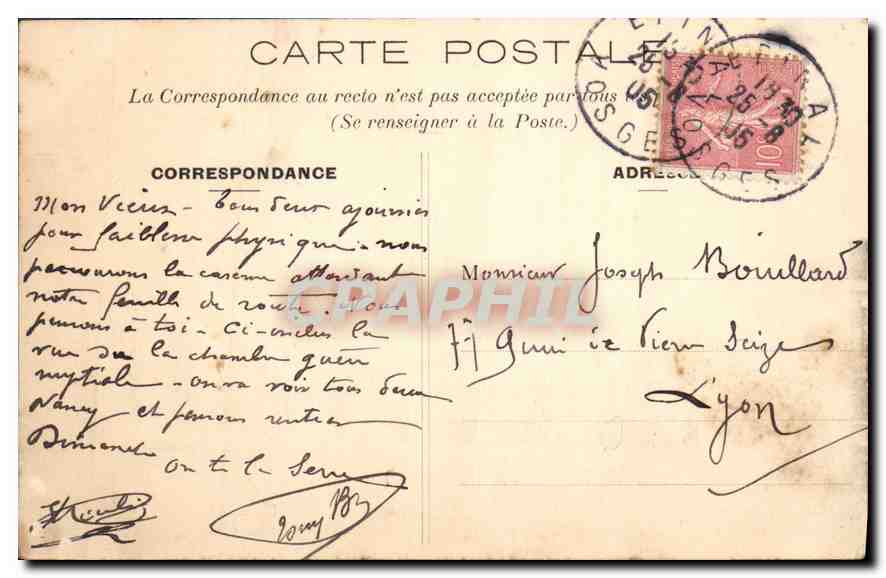 CARTE POSTALE
La Correspondance au recto n'est pas acceptée par tous
(Se renseigner à la Poste.)
CORRESPONDANCE
ADRESSE
Mon Vieux - tous deux ajournés
pour faiblesse physique. nous
parcourons la caserne attendant
notre feuille de route. Nous
pensons à toi - Ci-inclus la
vue de la chambre guère
nuptiale - on va voir tous deux
Nancy et pensons rentrer
Dimanche
on te la serre
Tony
Monsieur Joseph Bouillard
77 Quai de Pierre Seize
Lyon
EPINAL
VOSGES
19 30
25 -8
05
EPINAL
VOSGES
19 30
25 -8
05
10
CPAPHIL